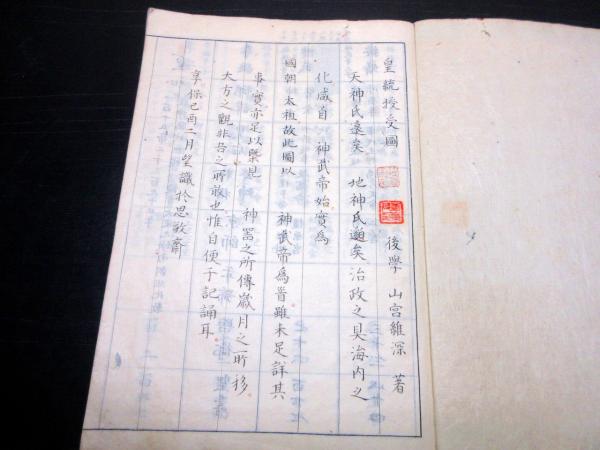 皇統授受圖 後學 山宮維深 著
天神氏遠矣 地神氏邈矣治政之具海内之
化咸自 神武帝始實爲
國朝 太祖故此圖以 神武帝爲首雖未足詳其
事實亦足以槩見 神器之所傳歳月之所移
大方之觀非吾之所敢也惟自便于記誦耳
享保己酉二月望識於思敬齋